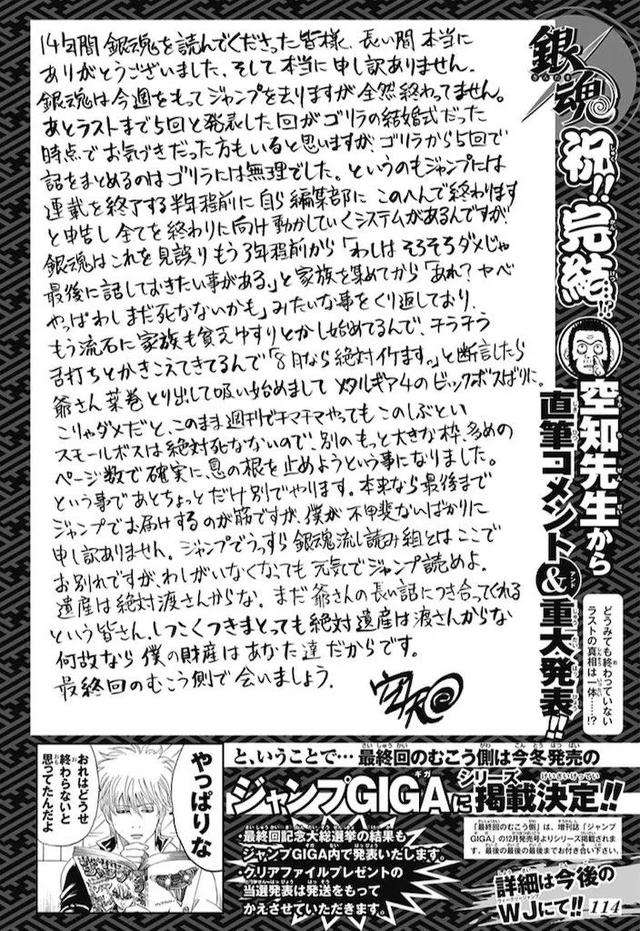 銀魂
祝!! 完結!?
空知先生から
直筆コメント&重大発表!!
どうみても終わっていない
ラストの真相は一体……!?
14年間 銀魂を読んでくださった皆様、長い間 本当に
ありがとうございました。そして本当に申し訳ありません。
銀魂は今週をもってジャンプを去りますが 全然終わってません。
あとラストまで5回と発表した回がゴリラの結婚式だった
時点でお気づきだった方もいると思いますが、ゴリラから5回で
話をまとめるのはゴリラには無理でした。というのもジャンプには
連載を終了する半年程前に自ら編集部に このへんで終わります
と申告し全てを終わりに向け動かしていくシステムがあるんですが
銀魂はこれを見誤り もう3年程前から「わしは そろそろダメじゃ
最後に話しておきたい事がある。」と家族を集めてから「あれ?ヤベ
やっぱわし まだ死なないかも」みたいな事をくり返しており、
もう流石に家族も貧乏ゆすりとかし始めてるんで、チラチラ
舌打ちとかきこえてきてるんで「8月なら絶対イケます。」と断言したら
爺さん 葉巻とり出して吸い始めまして メタルギア4のビックボスばりに。
こりゃダメだと、このまま週刊でチマチマやっても このしぶとい
スモールボスは絶対死なないので、別のもっと大きな枠、多めの
ページ数で確実に、息の根を止めようという事になりました。
という事であとちょっとだけ別でやります。本来なら最後まで
ジャンプでお届けするのが筋ですが、僕が不甲斐ないばかりに
申し訳ありません。ジャンプでうっすら銀魂流し読み組とはここで
お別れですが、わしがいなくなっても元気でジャンプ読めよ。
遺産は絶対渡さんからな。まだ爺さんの長い話につき合ってくれる
という皆さん、しつこくつきまとっても絶対遺産は渡さんからな
何故なら 僕の財産はあなた達だからです。
最終回のむこう側で会いましょう。
やっぱりな
おれはどうせ
終わらないと
思ってたんだよ
と、いうことで…最終回のむこう側は今冬発売の
ジャンプGIGAにシリーズ掲載決定!!
・最終回記念大総選挙の結果も
ジャンプGIGA内で発表いたします。
・クリアファイルプレゼントの
当選発表は発送をもって
かえさせていただきます。
「最終回のむこう側」は、増刊誌「ジャンプ
GIGA」の12月発売号よりシリーズ掲載されま
す。最後の最後の最後までお付き合い下さい。
詳細は今後の
WJにて!!
114